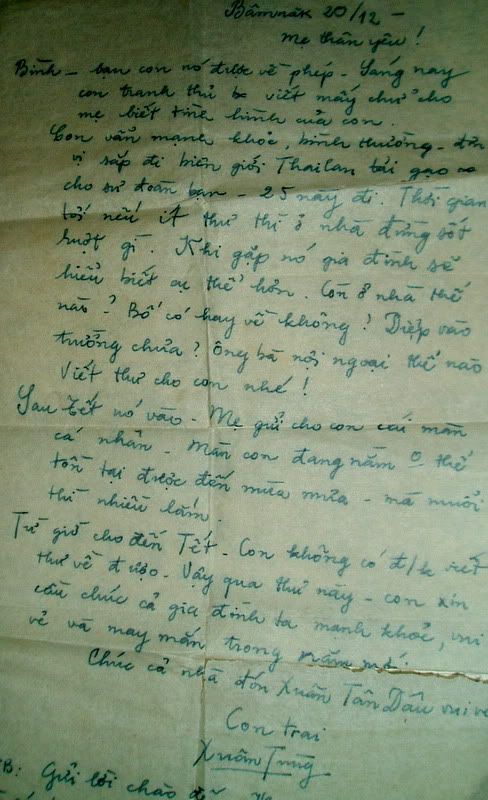 Bâmnák 20/12 -
Mẹ thân yêu!
Bình - bạn con nó được về phép - Sáng nay
con tranh thủ viết mấy chữ cho
mẹ biết tình hình của con.
Con vẫn mạnh khỏe, bình thường - đơn
vị sắp đi biên giới Thailan tải gạo
cho sư đoàn bạn - 25 này đi. Thời gian
tới nếu ít thư thì ở nhà đừng sốt
ruột gì. Khi gặp nó gia đình sẽ
hiểu biết cụ thể hơn. Còn ở nhà thế
nào? Bố có hay về không? Diệp vào
trường chưa? Ông bà nội ngoại thế nào
Viết thư cho con nhé!
Sau Tết nó vào - Mẹ gửi cho con cái màn
cá nhân - Màn con đang nằm 0 thể
tồn tại được đến mùa mưa - mà muỗi
thì nhiều lắm.
Từ giờ cho đến Tết - Con không có đ/k viết
thư về được - Vậy qua thư này - con xin
cầu chúc cả gia đình ta mạnh khoẻ, vui
vẻ và may mắn trong năm mới.
Chúc cả nhà đón Xuân Tân Dậu vui vẻ
Con trai
Xuân Tùng
B: Gửi lời chào